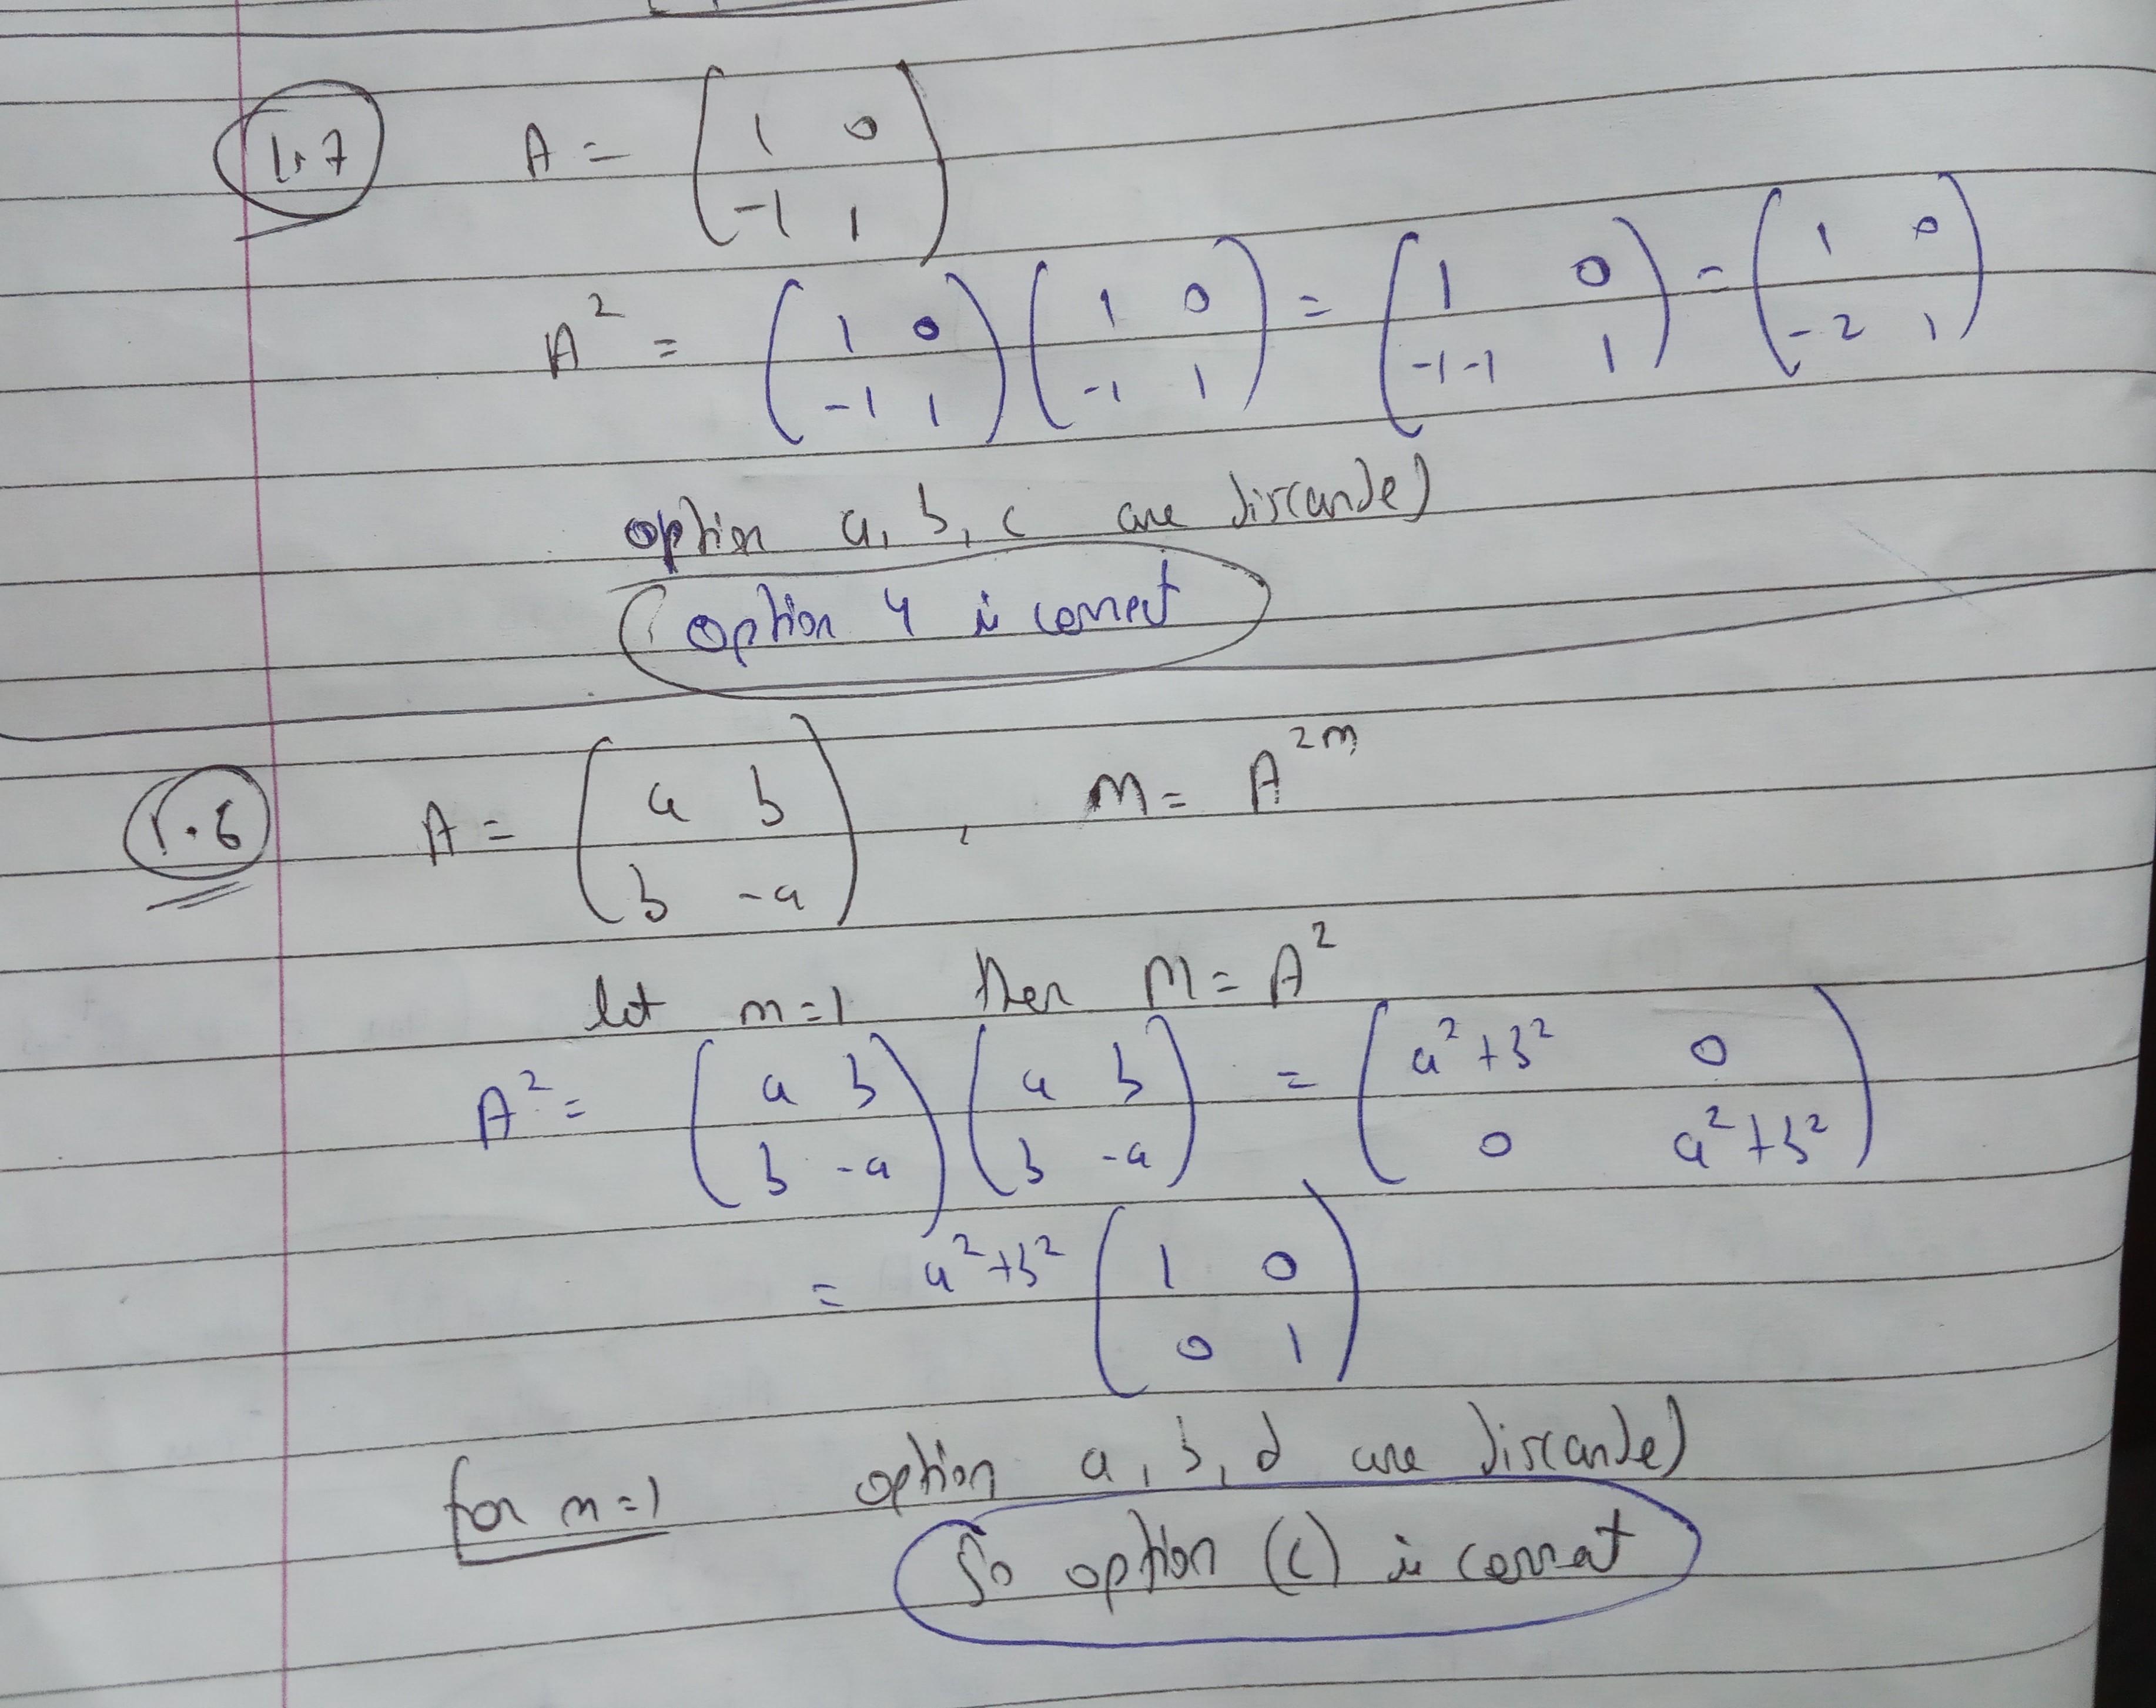 1.7 A = ( 1 0 -1 1 )
A² = ( 1 0 -1 1 ) ( 1 0 -1 1 ) = ( 1 0 -1-1 1 ) = ( 1 0 -2 1 )
option a, b, c are discarded
option 4 is correct
1.6 A = ( a b b -a ) , M = A²ᵐ
let m=1 then M = A²
A² = ( a b b -a ) ( a b b -a ) = ( a²+b² 0 0 a²+b² )
= a²+b² ( 1 0 0 1 )
for m=1 option a, b, d are discarded
So option (c) is correct